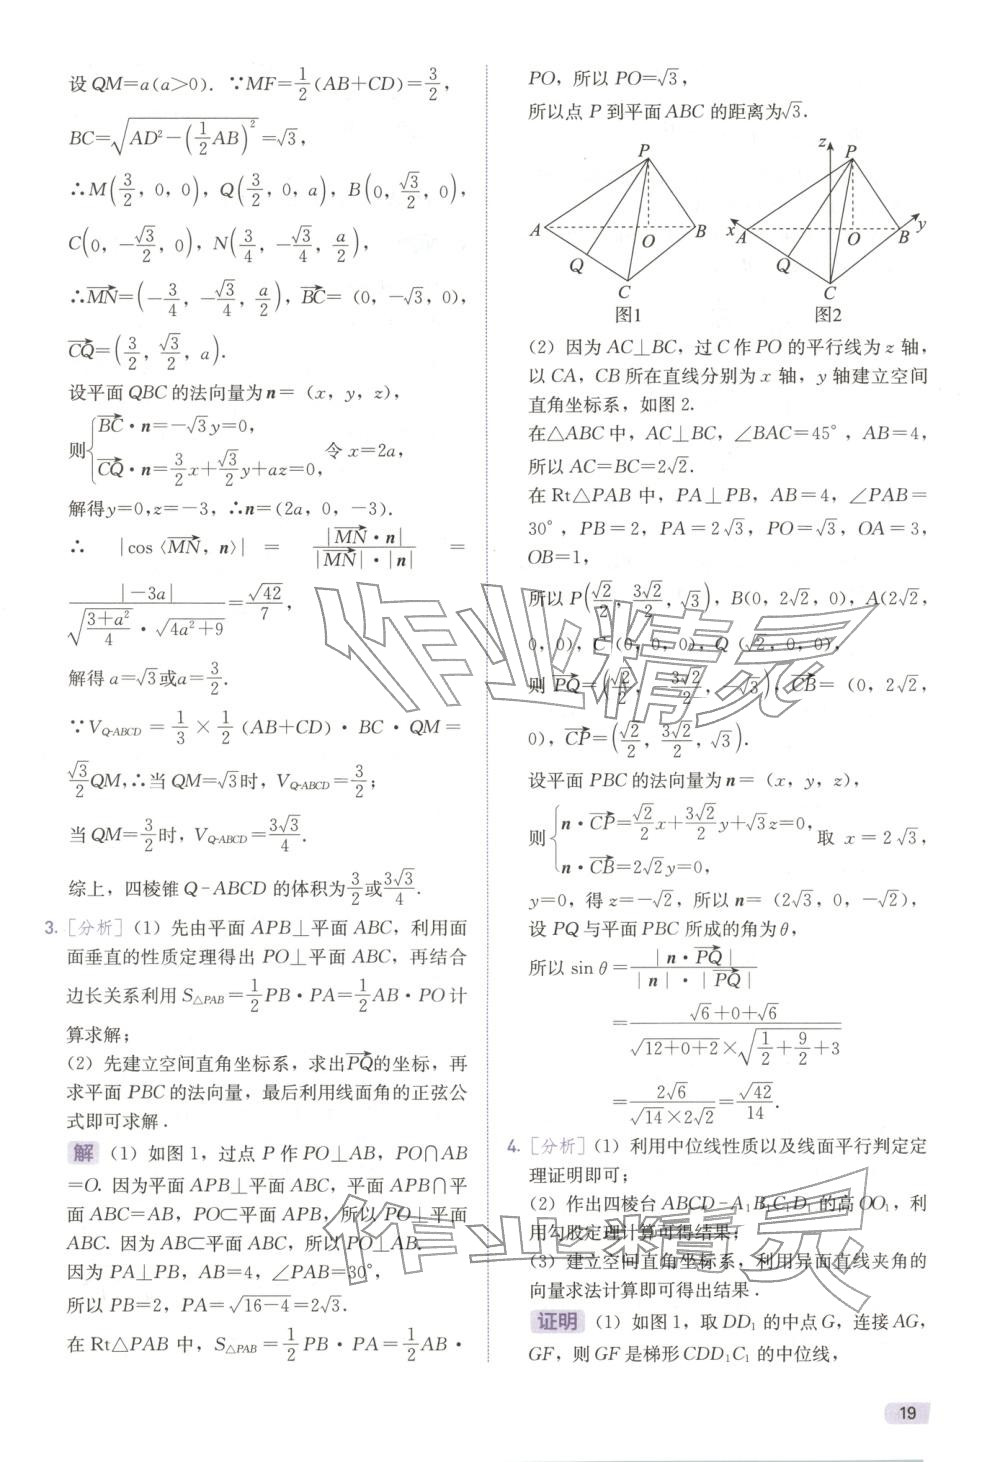 设 QM=a(a>0). ∵MF=1/2(AB+CD)=3/2,
BC=√(AD²-(1/2AB)²)=√3,
∴M(3/2, 0, 0), Q(3/2, 0, a), B(0, √3/2, 0),
C(0, -√3/2, 0), N(3/4, -√3/4, a/2),
∴MN→=(-3/4, -√3/4, a/2), BC→=(0, -√3, 0),
CQ→=(3/2, √3/2, a).
设平面 QBC 的法向量为 n=(x, y, z),
则{BC→·n=-√3y=0,
CQ→·n=3/2x+√3/2y+az=0, 令 x=2a,
解得y=0,z=-3, ∴n=(2a, 0, -3).
∴ |cos〈MN→, n〉| = |MN→·n|/(|MN→|·|n|) =
|-3a|/(√((3+a²)/4)·√(4a²+9))=√42/7,
解得 a=√3或a=3/2.
∵V_{Q-ABCD}=1/3×1/2(AB+CD)·BC·QM=
√3/2QM,∴当 QM=√3时, V_{Q-ABCD}=3/2;
当 QM=3/2时, V_{Q-ABCD}=3√3/4.
综上, 四棱锥 Q-ABCD 的体积为3/2或3√3/4.
3. [分析] (1) 先由平面 APB⊥平面 ABC, 利用面
面垂直的性质定理得出 PO⊥平面 ABC, 再结合
边长关系利用 S△PAB=1/2PB·PA=1/2AB·PO 计
算求解;
(2) 先建立空间直角坐标系, 求出PQ→的坐标, 再
求平面 PBC 的法向量, 最后利用线面角的正弦公
式即可求解.
解 (1) 如图 1, 过点 P 作 PO⊥AB, PO∩AB
=O. 因为平面 APB⊥平面 ABC, 平面 APB∩平
面 ABC=AB, PO⊂平面 APB, 所以 PO⊥平面
ABC. 因为 AB⊂平面 ABC, 所以 PO⊥AB.
因为 PA⊥PB, AB=4, ∠PAB=30°,
所以 PB=2, PA=√(16-4)=2√3.
在 Rt△PAB 中, S△PAB=1/2PB·PA=1/2AB·
PO, 所以 PO=√3,
所以点 P 到平面 ABC 的距离为√3.
P
A
O
B
Q
C
图1
z
P
x
A
O
B
y
Q
C
图2
(2) 因为 AC⊥BC, 过 C 作 PO 的平行线为 z 轴,
以 CA, CB 所在直线分别为 x 轴, y 轴建立空间
直角坐标系, 如图 2.
在△ABC 中, AC⊥BC, ∠BAC=45°, AB=4,
所以 AC=BC=2√2.
在 Rt△PAB 中, PA⊥PB, AB=4, ∠PAB=
30°, PB=2, PA=2√3, PO=√3, OA=3,
OB=1,
所以 P(√2/2, 3√2/2, √3), B(0, 2√2, 0), A(2√2,
0, 0), C(0, 0, 0), Q(√2, 0, 0),
则 PQ→=(√2/2, -3√2/2, -√3), CB→=(0, 2√2,
0), CP→=(√2/2, 3√2/2, √3).
设平面 PBC 的法向量为 n=(x, y, z),
则{n·CP→=√2/2x+3√2/2y+√3z=0,
n·CB→=2√2y=0, 取 x=2√3,
y=0, 得 z=-√2, 所以 n=(2√3, 0, -√2),
设 PQ 与平面 PBC 所成的角为θ,
所以 sinθ=|n·PQ→|/(|n|·|PQ→|)
=(√6+0+√6)/(√(12+0+2)×√(1/2+9/2+3))
=2√6/(√14×2√2)=√42/14.
4. [分析] (1) 利用中位线性质以及线面平行判定定
理证明即可;
(2) 作出四棱台 ABCD-A₁B₁C₁D₁ 的高 OO₁, 利
用勾股定理计算可得结果;
(3) 建立空间直角坐标系, 利用异面直线夹角的
向量求法计算即可得出结果.
证明 (1) 如图 1, 取 DD₁ 的中点 G, 连接 AG,
GF, 则 GF 是梯形 CDD₁C₁ 的中位线,
19
作业精灵
作业精灵